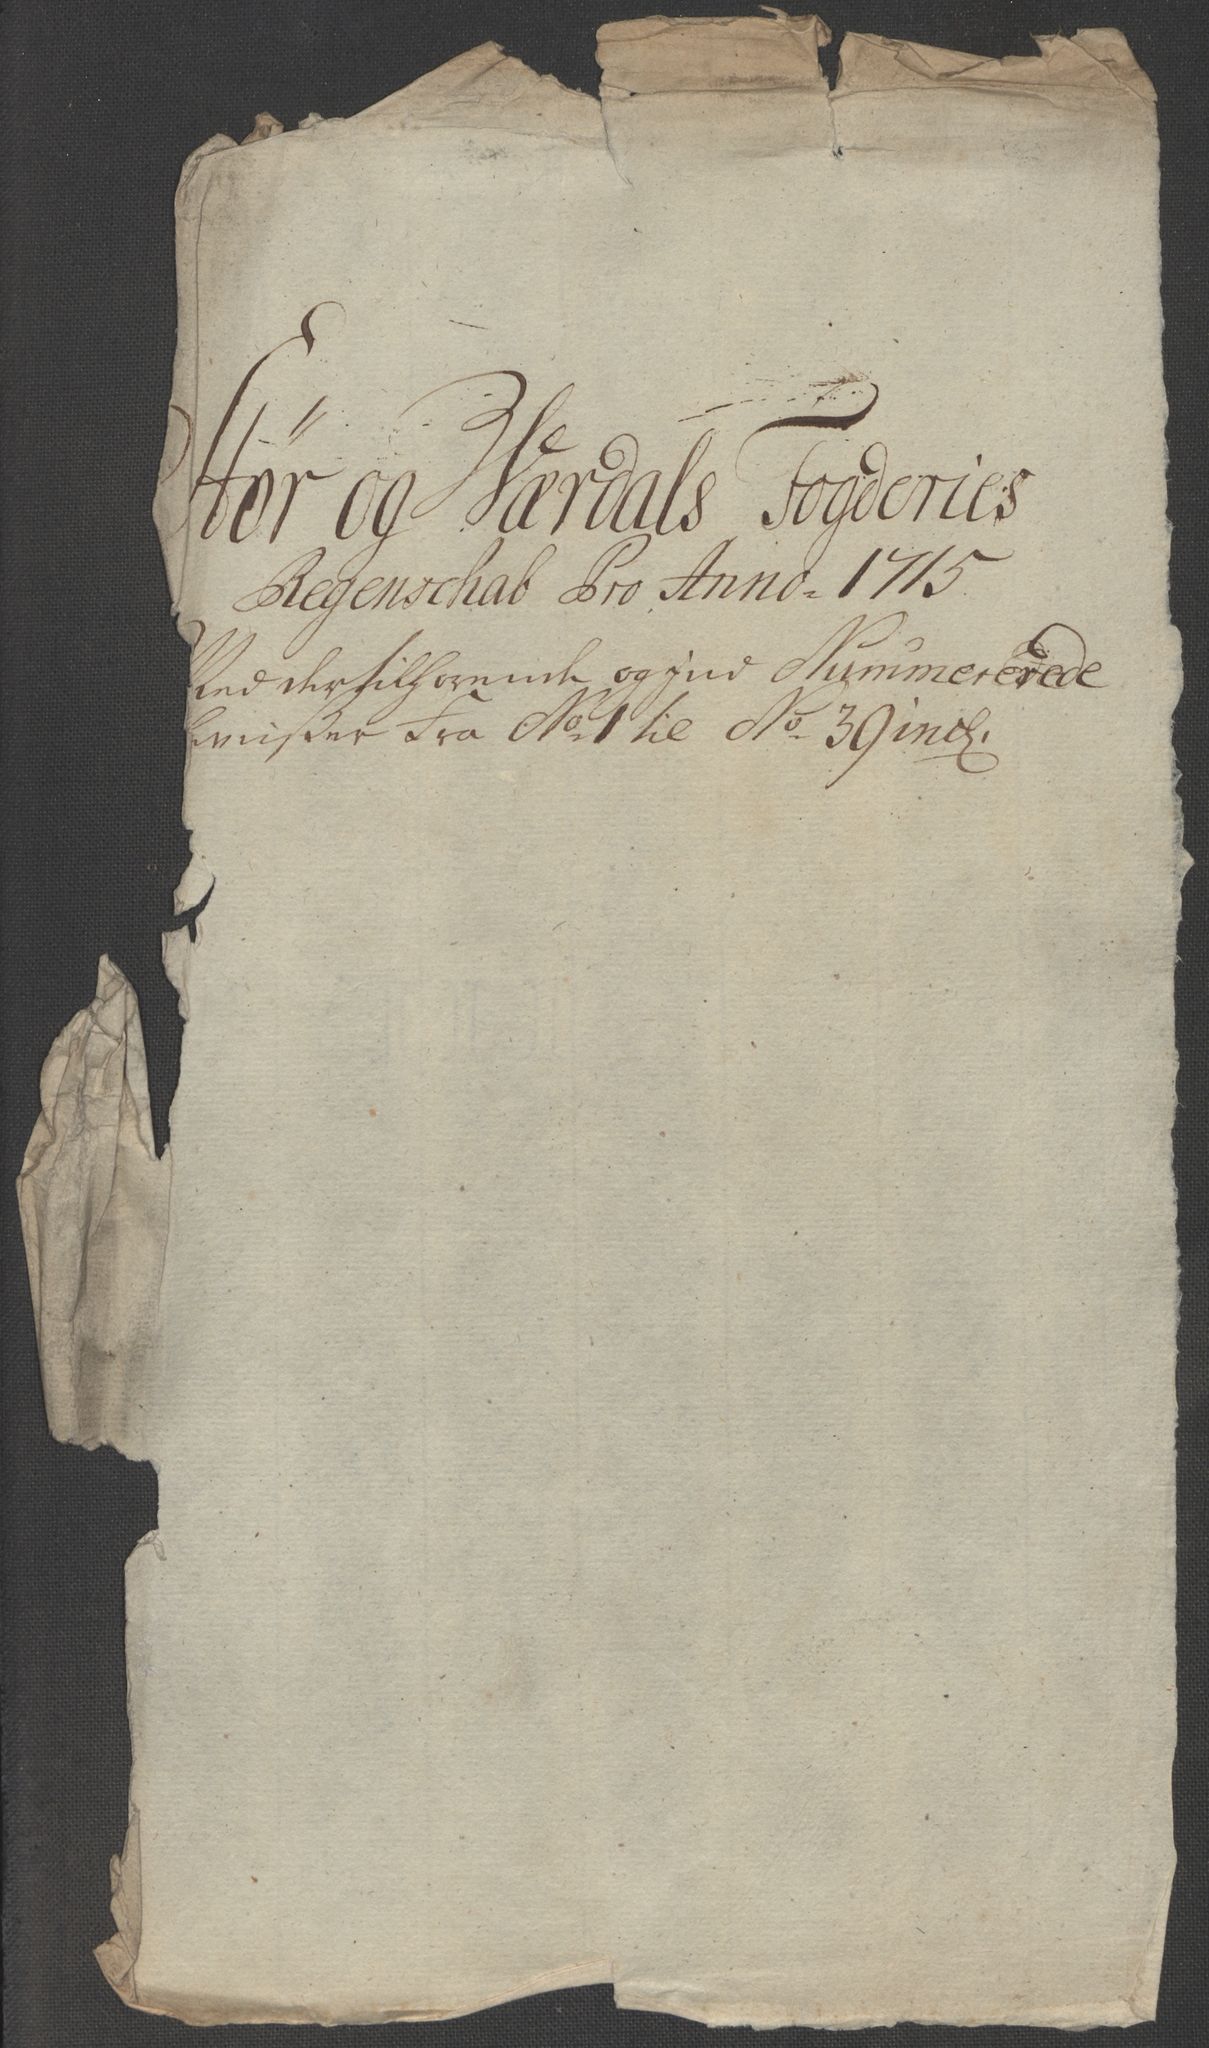 Stør og Værdals Fogderies
Regenschab Pro Anno 1715
Med dertilhørende og ind Nummererede
beviisser Fra No 1 til No 39 incl.